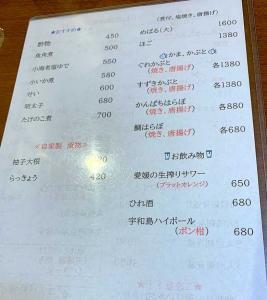 ★おすすめ★
酢物 450
魚角煮 500
小海老塩ゆで 550
小いか煮 580
せい 600
明太子 680
たけのこ煮 700
≪自家製 漬物≫
柚子大根 420
らっきょう 420
(煮付、塩焼き、唐揚げ)
めばる(大) 1600
ほご 1380
かま、かぶと
ぐれかぶと 各1380
(焼き、唐揚げ)
すずきかぶと 各1380
(焼き、唐揚げ)
かんぱちはらぼ 各880
(焼き、唐揚げ)
鯛はらぼ 各680
(焼き、唐揚げ)
お飲み物
愛媛の生搾りサワー
(ブラットオレンジ) 650
ひれ酒 680
宇和島ハイボール
(ポン柑) 680